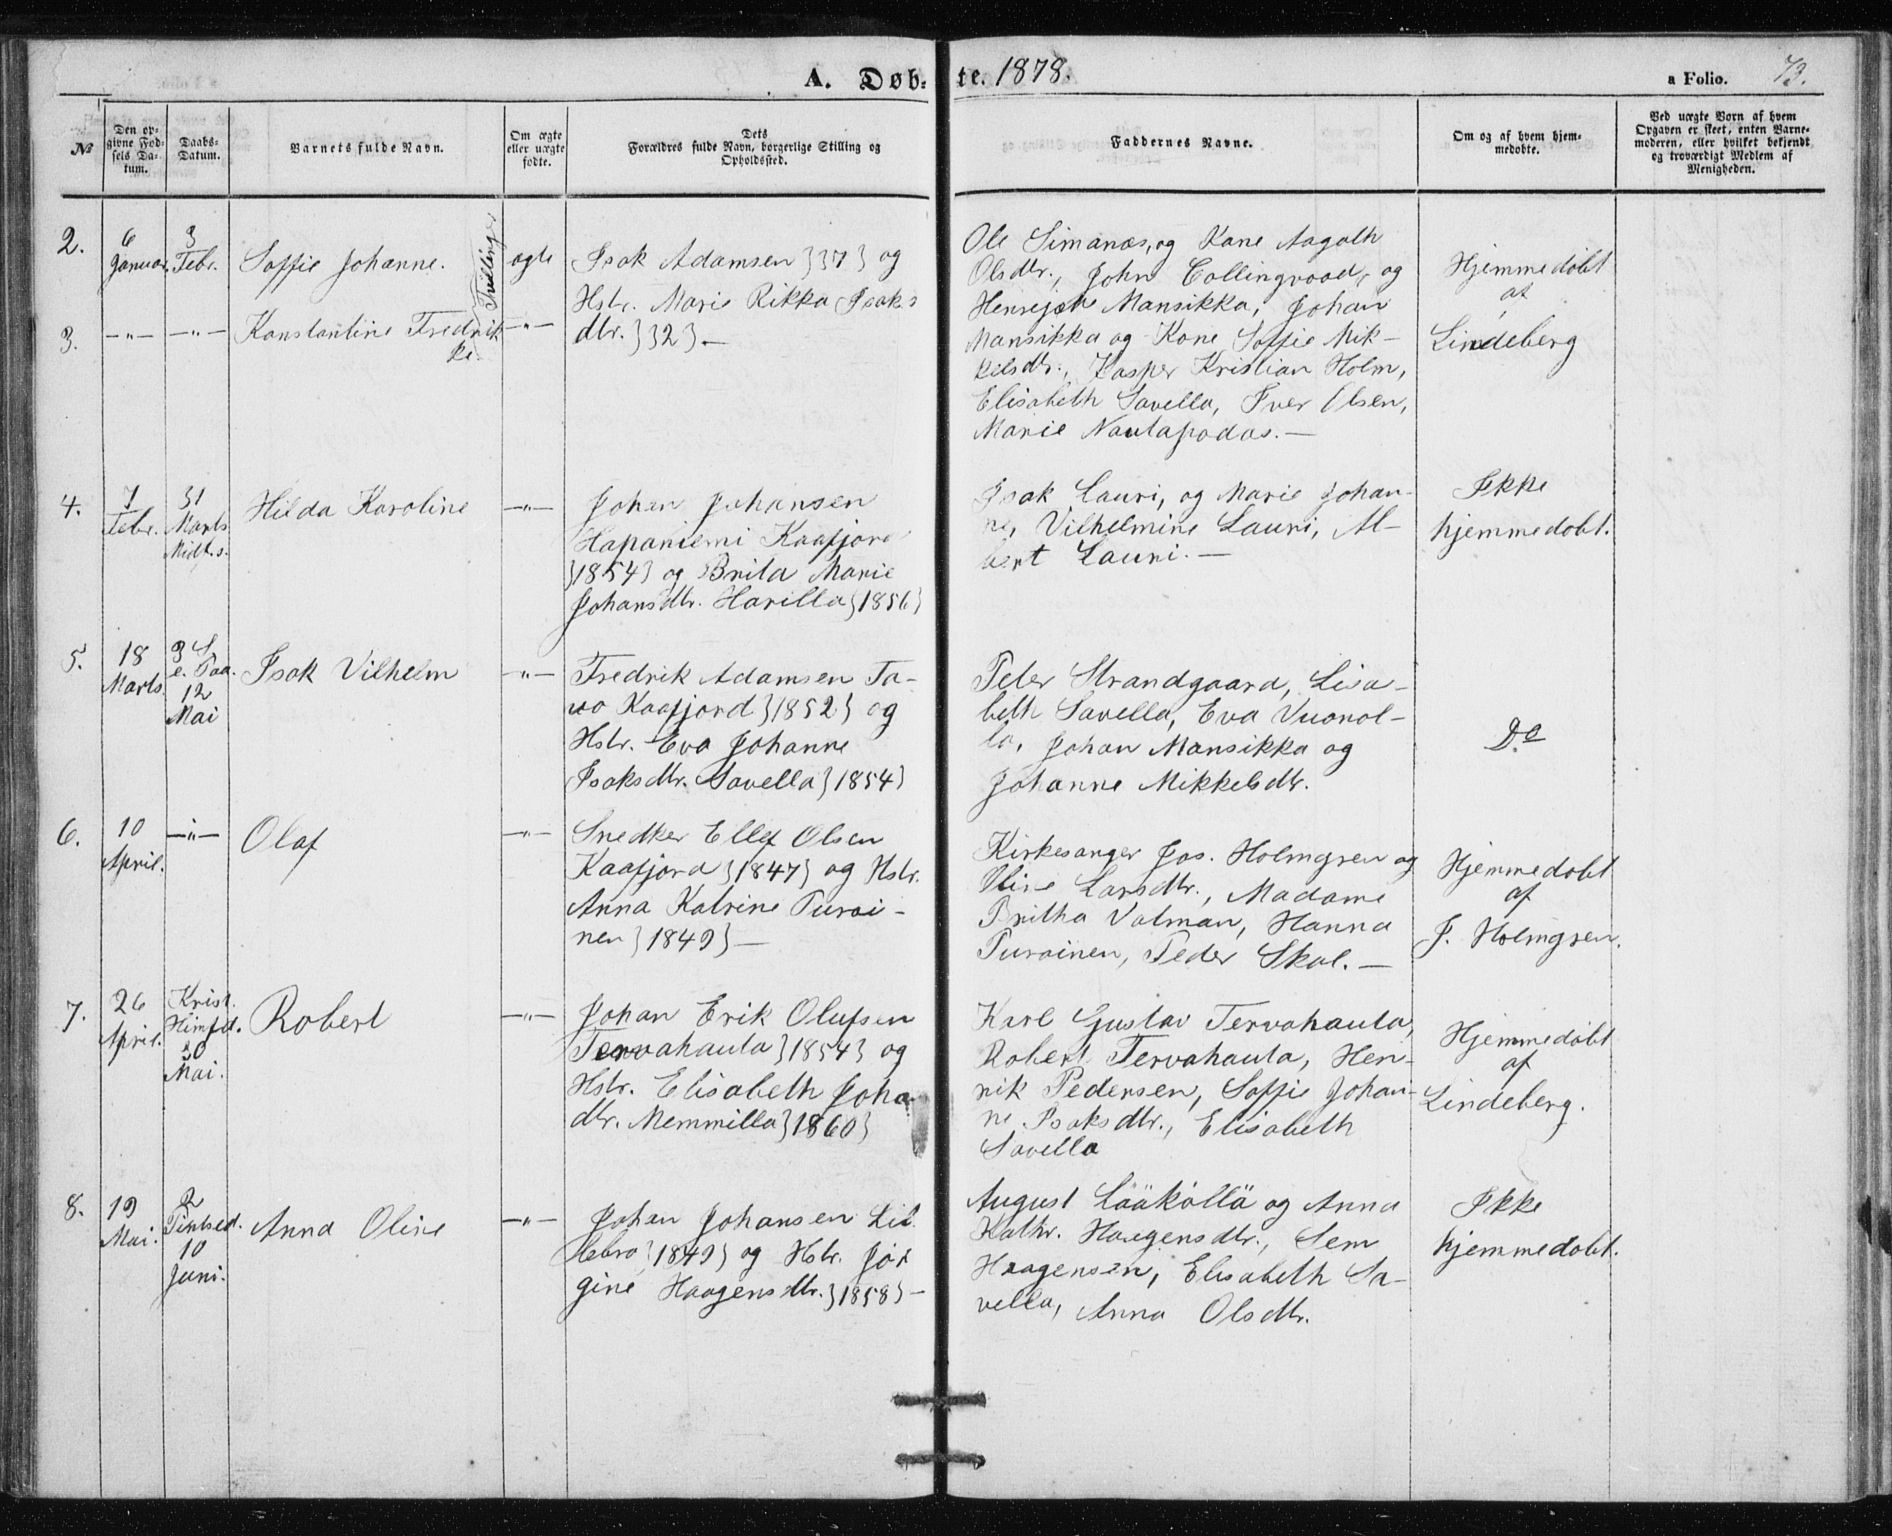 A. Døb-te. 1878.
a Folio. 73.
No
Den op-
givne Fød-
sels Da-
tum.
Daabs-
Datum.
Barnets fulde Navn.
Om ægte
eller uægte
fødte.
Dets
Forældres fulde Navn, borgerlige Stilling og
Opholdssted.
Faddernes Navne.
Om og af hvem hjem-
medøbte.
Ved uægte Børn af hvem
Opgaven er skeet, enten Barne-
moderen, eller hvilket bekjendt
og troværdigt Medlem af
Menigheden.
2.
6
Januar.
3
Febr.
Soffie Johanne.
Tvillinger
ægte
Isak Adamsen }37} og
Hstr. Marie Rikka Isaks
dtr. }32}.—
Ole Simanæs, og Kone Aagoth
Olsdtr., John Collingvood, og
Mansikka, Johan
Mansikka og Kone Soffie Mik-
kelsdtr., Kasper Kristian Holm,
Elisabeth Savella, Iver Olsen,
Marie Nautapodas.—
Hjemmedøbt
af
Lindeberg
3.
—"—
—"—
Konstantine Fredrik
ke.
—"—
4.
7
Febr.
31
Marts
Midt.s.
Hilda Karoline
—"—
Johan Johansen
Hapaniemi Kaafjord
}1854} og Brita Marie
Johansdtr. Harilla}1856}
Isak Lauri, og Marie Johan-
ne, Vilhelmine Lauri, Al-
bert Lauri.—
Ikke
hjemmedøbt.
5.
18
Marts.
3 S.
e. Paa.
12
Mai
Isak Vilhelm
—"—
Fredrik Adamsen Ta-
vo Kaafjord}1852} og
Hstr. Eva Johanne
Isaksdtr. Savella}1854}
Peter Strandgaard, Lisa-
beth Savella, Eva Vuonol-
la, Johan Mansikka og
Johanne Mikkelsdtr.
Do
6.
10
April.
—"—
Olaf
—"—
Snedker Ellef Olsen
Kaafjord}1847} og Hstr.
Anna Katrine Purai-
nen}1849}—
Kirkesanger Jos. Holmgren og
Oline Larsdtr., Madame
Britha Valman, Hanna
Purainen, Peder Skal.—
Hjemmedøbt
af
J. Holmgren.
7.
26
April.
Krist.
Himfd.
30
Mai.
Robert
—"—
Johan Erik Olufsen
Tervahauta}1854} og
Hstr. Elisabeth Joha
dtr. Memmilla}1860}
Karl Gustav Tervahauta,
Robert Tervahauta, Hen-
rik Pedersen, Soffie Johan-
ne Isaksdtr., Elisabeth
Savella
Hjemmedøbt
af
Lindeberg.
8.
19
Mai.
2
Pintsed.
10
Juni.
Anna Oline
—"—
Johan Johansen Lil
lebro}1849} og Hstr. Jør
gine Haagensdtr.}1858}—
August Lääköllä og Anna
Kathr. Haagensdtr., Sem
Haagensen, Elisabeth Sa-
vella, Anna Olsdtr.
Ikke
hjemmedøbt.